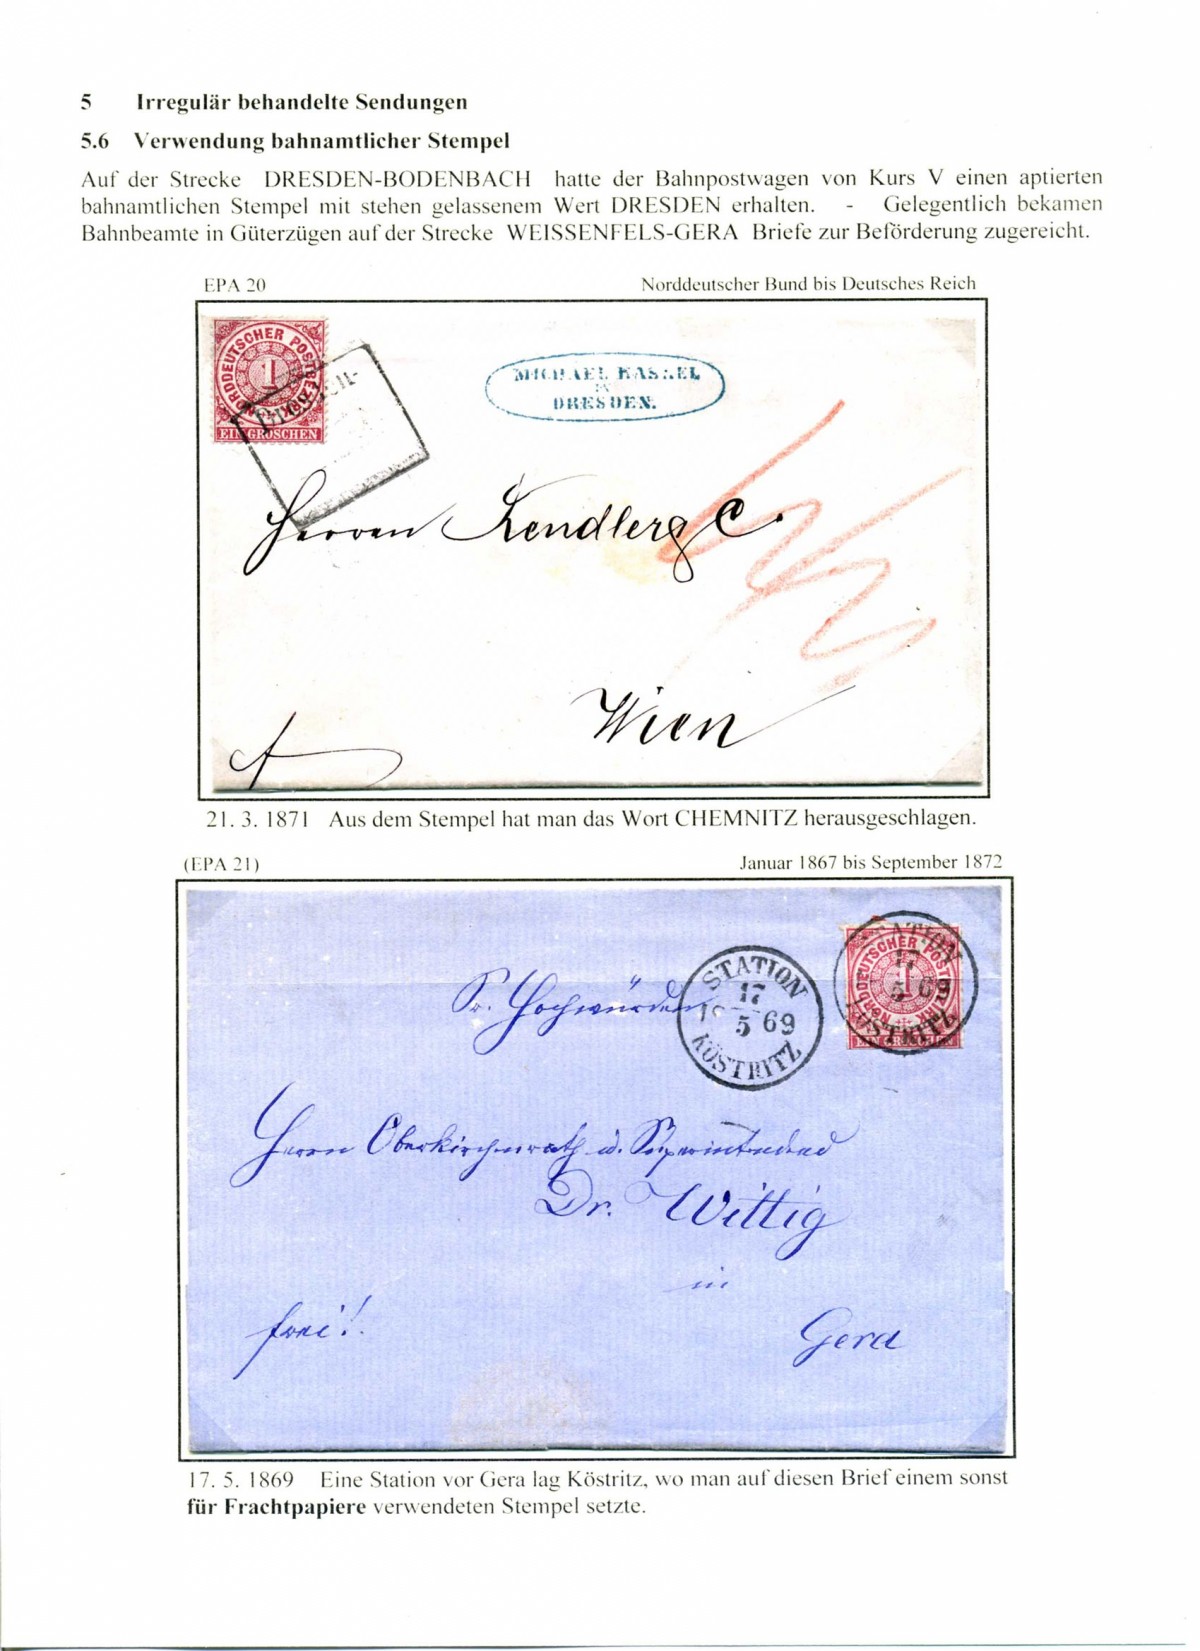 5 Irregulär behandelte Sendungen
5.6 Verwendung bahnamtlicher Stempel
Auf der Strecke DRESDEN-BODENBACH hatte der Bahnpostwagen von Kurs V einen aptierten
bahnamtlichen Stempel mit stehen gelassenem Wert DRESDEN erhalten. - Gelegentlich bekamen
Bahnbeamte in Güterzügen auf der Strecke WEISSENFELS-GERA Briefe zur Beförderung zugereicht.
EPA 20 Norddeutscher Bund bis Deutsches Reich
NORDDEUTSCHER POSTBEZIRK
1
EIN GROSCHEN
MICHAEL
IN
DRESDEN.
Herren Kendler & C.
Wien
21. 3. 1871 Aus dem Stempel hat man das Wort CHEMNITZ herausgeschlagen.
(EPA 21) Januar 1867 bis September 1872
STATION
17
5 69
KÖSTRITZ
STATION
17
5 69
KÖSTRITZ
NORDDEUTSCHER POSTBEZIRK
1
EIN GROSCHEN
Sr. Hochwürden
Herrn Oberkirchenrath u. Superintendend
Dr. Wittig
in
frei! Gera
17. 5. 1869 Eine Station vor Gera lag Köstritz, wo man auf diesen Brief einem sonst
für Frachtpapiere verwendeten Stempel setzte.